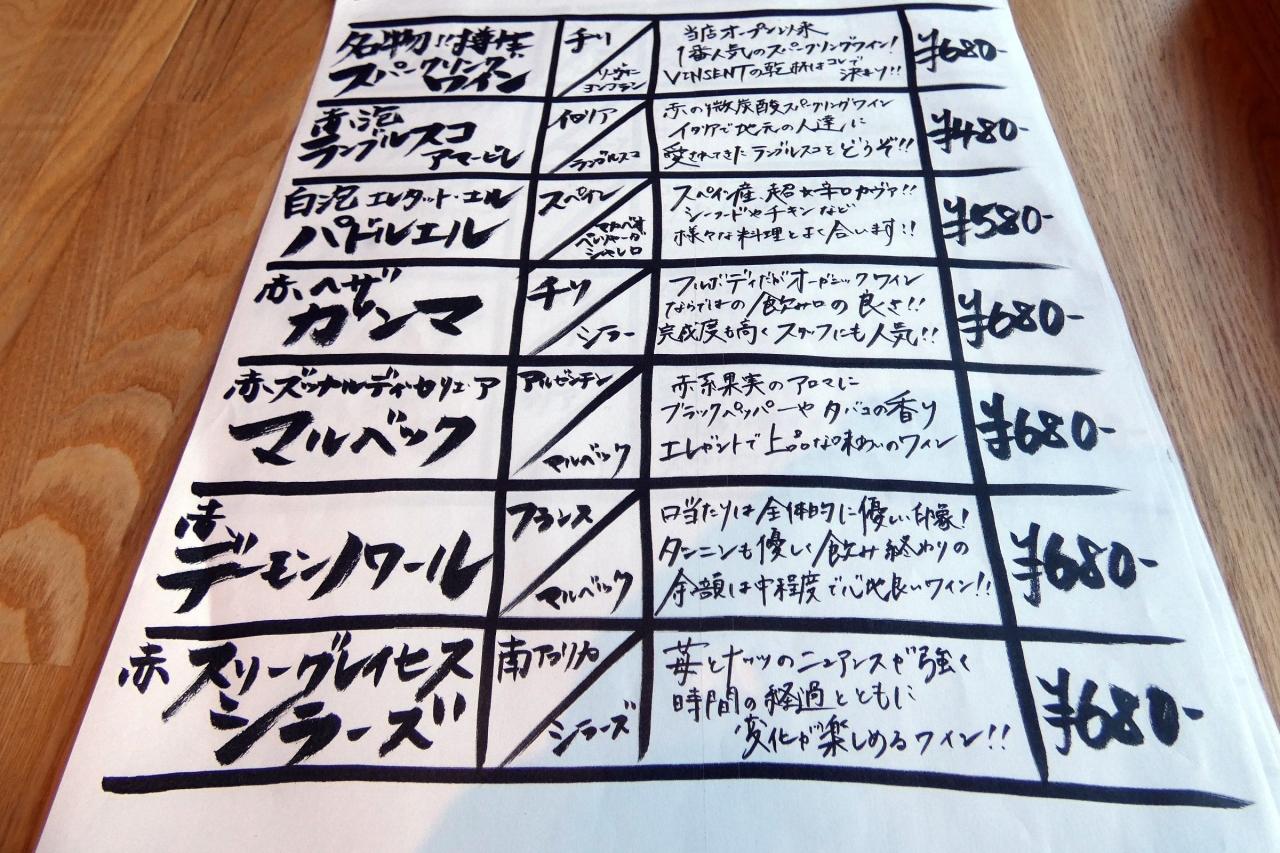 名物!!樽生
スパークリング
ワイン
チリ
ソーヴィニヨンブラン
当店オープン以来
1番人気のスパークリングワイン!
VINSENTの乾杯はコレで
決まり!!
¥680-
赤泡
ランブルスコ
アマービレ
イタリア
ランブルスコ
赤の微炭酸スパークリングワイン
イタリアで地元の人達に
愛されてきたランブルスコをどうぞ!!
¥480-
白泡 エレタット・エル
パドルエル
スペイン
マカベオ
パレリャーダ
シャレロ
スペイン産、超辛口カヴァ!!
シーフードやチキンなど
様々な料理とよく合います!!
¥580-
赤、ヘザ
ガンマ
チリ
シラー
フルボディだがオーガニックワイン
ならではの飲み口の良さ!!
完成度も高くスタッフにも人気!!
¥680-
赤、ズッカルディ・セリエ・ア
マルベック
アルゼンチン
マルベック
赤系果実のアロマに
ブラックペッパーやタバコの香り
エレガントで上品な味わいのワイン
¥680-
赤、
デーモンノワール
フランス
マルベック
口当たりは全体的に優しい印象!
タンニンも優しく飲み終わりの
余韻は中程度で心地良いワイン!!
¥680-
赤 スリーグレイセス
シラーズ
南アフリカ
シラーズ
苺とナッツのニュアンスが強く
時間の経過とともに
変化が楽しめるワイン!!
¥680-